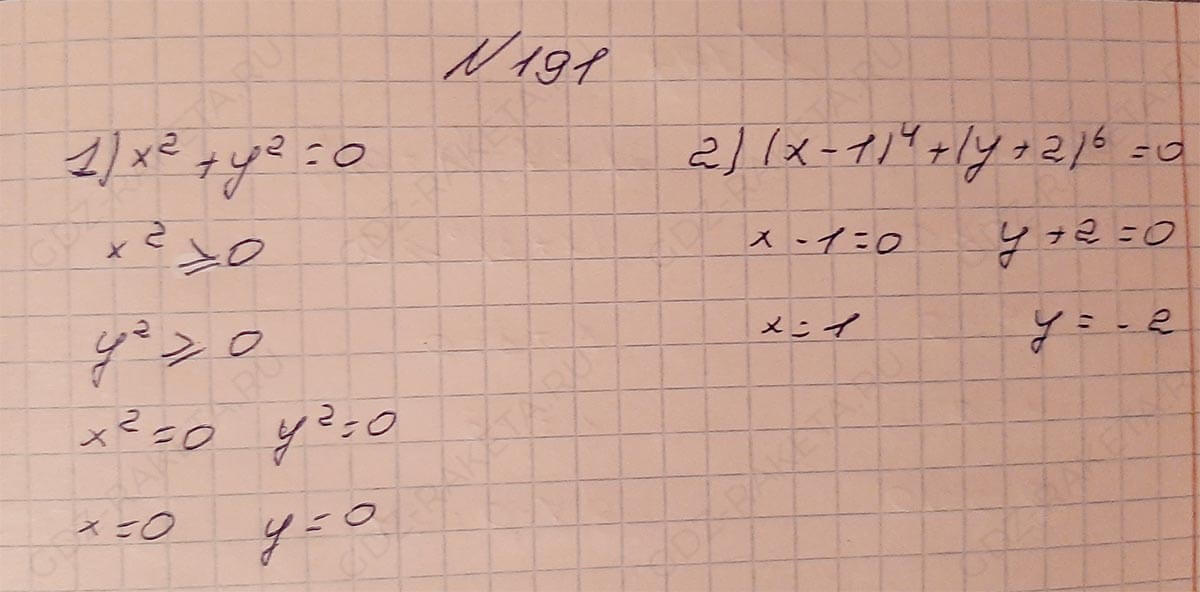 N 191
1) x² + y² = 0
x² ⩾ 0
y² ⩾ 0
x² = 0 y² = 0
x = 0 y = 0
2) (x - 1)⁴ + (y + 2)⁶ = 0
x - 1 = 0 y + 2 = 0
x = 1 y = - 2
GDZ-RAKETA.RU